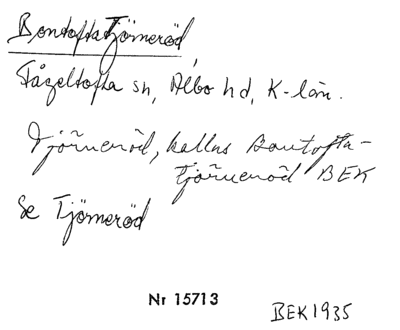 Bontofta Tjörneröd,
Fågeltofta sn, Albo hd, K-län.
Tjörneröd, kallas Bontofta-
Tjörneröd BEK
Se Tjörneröd
Nr 15713
BEK 1935